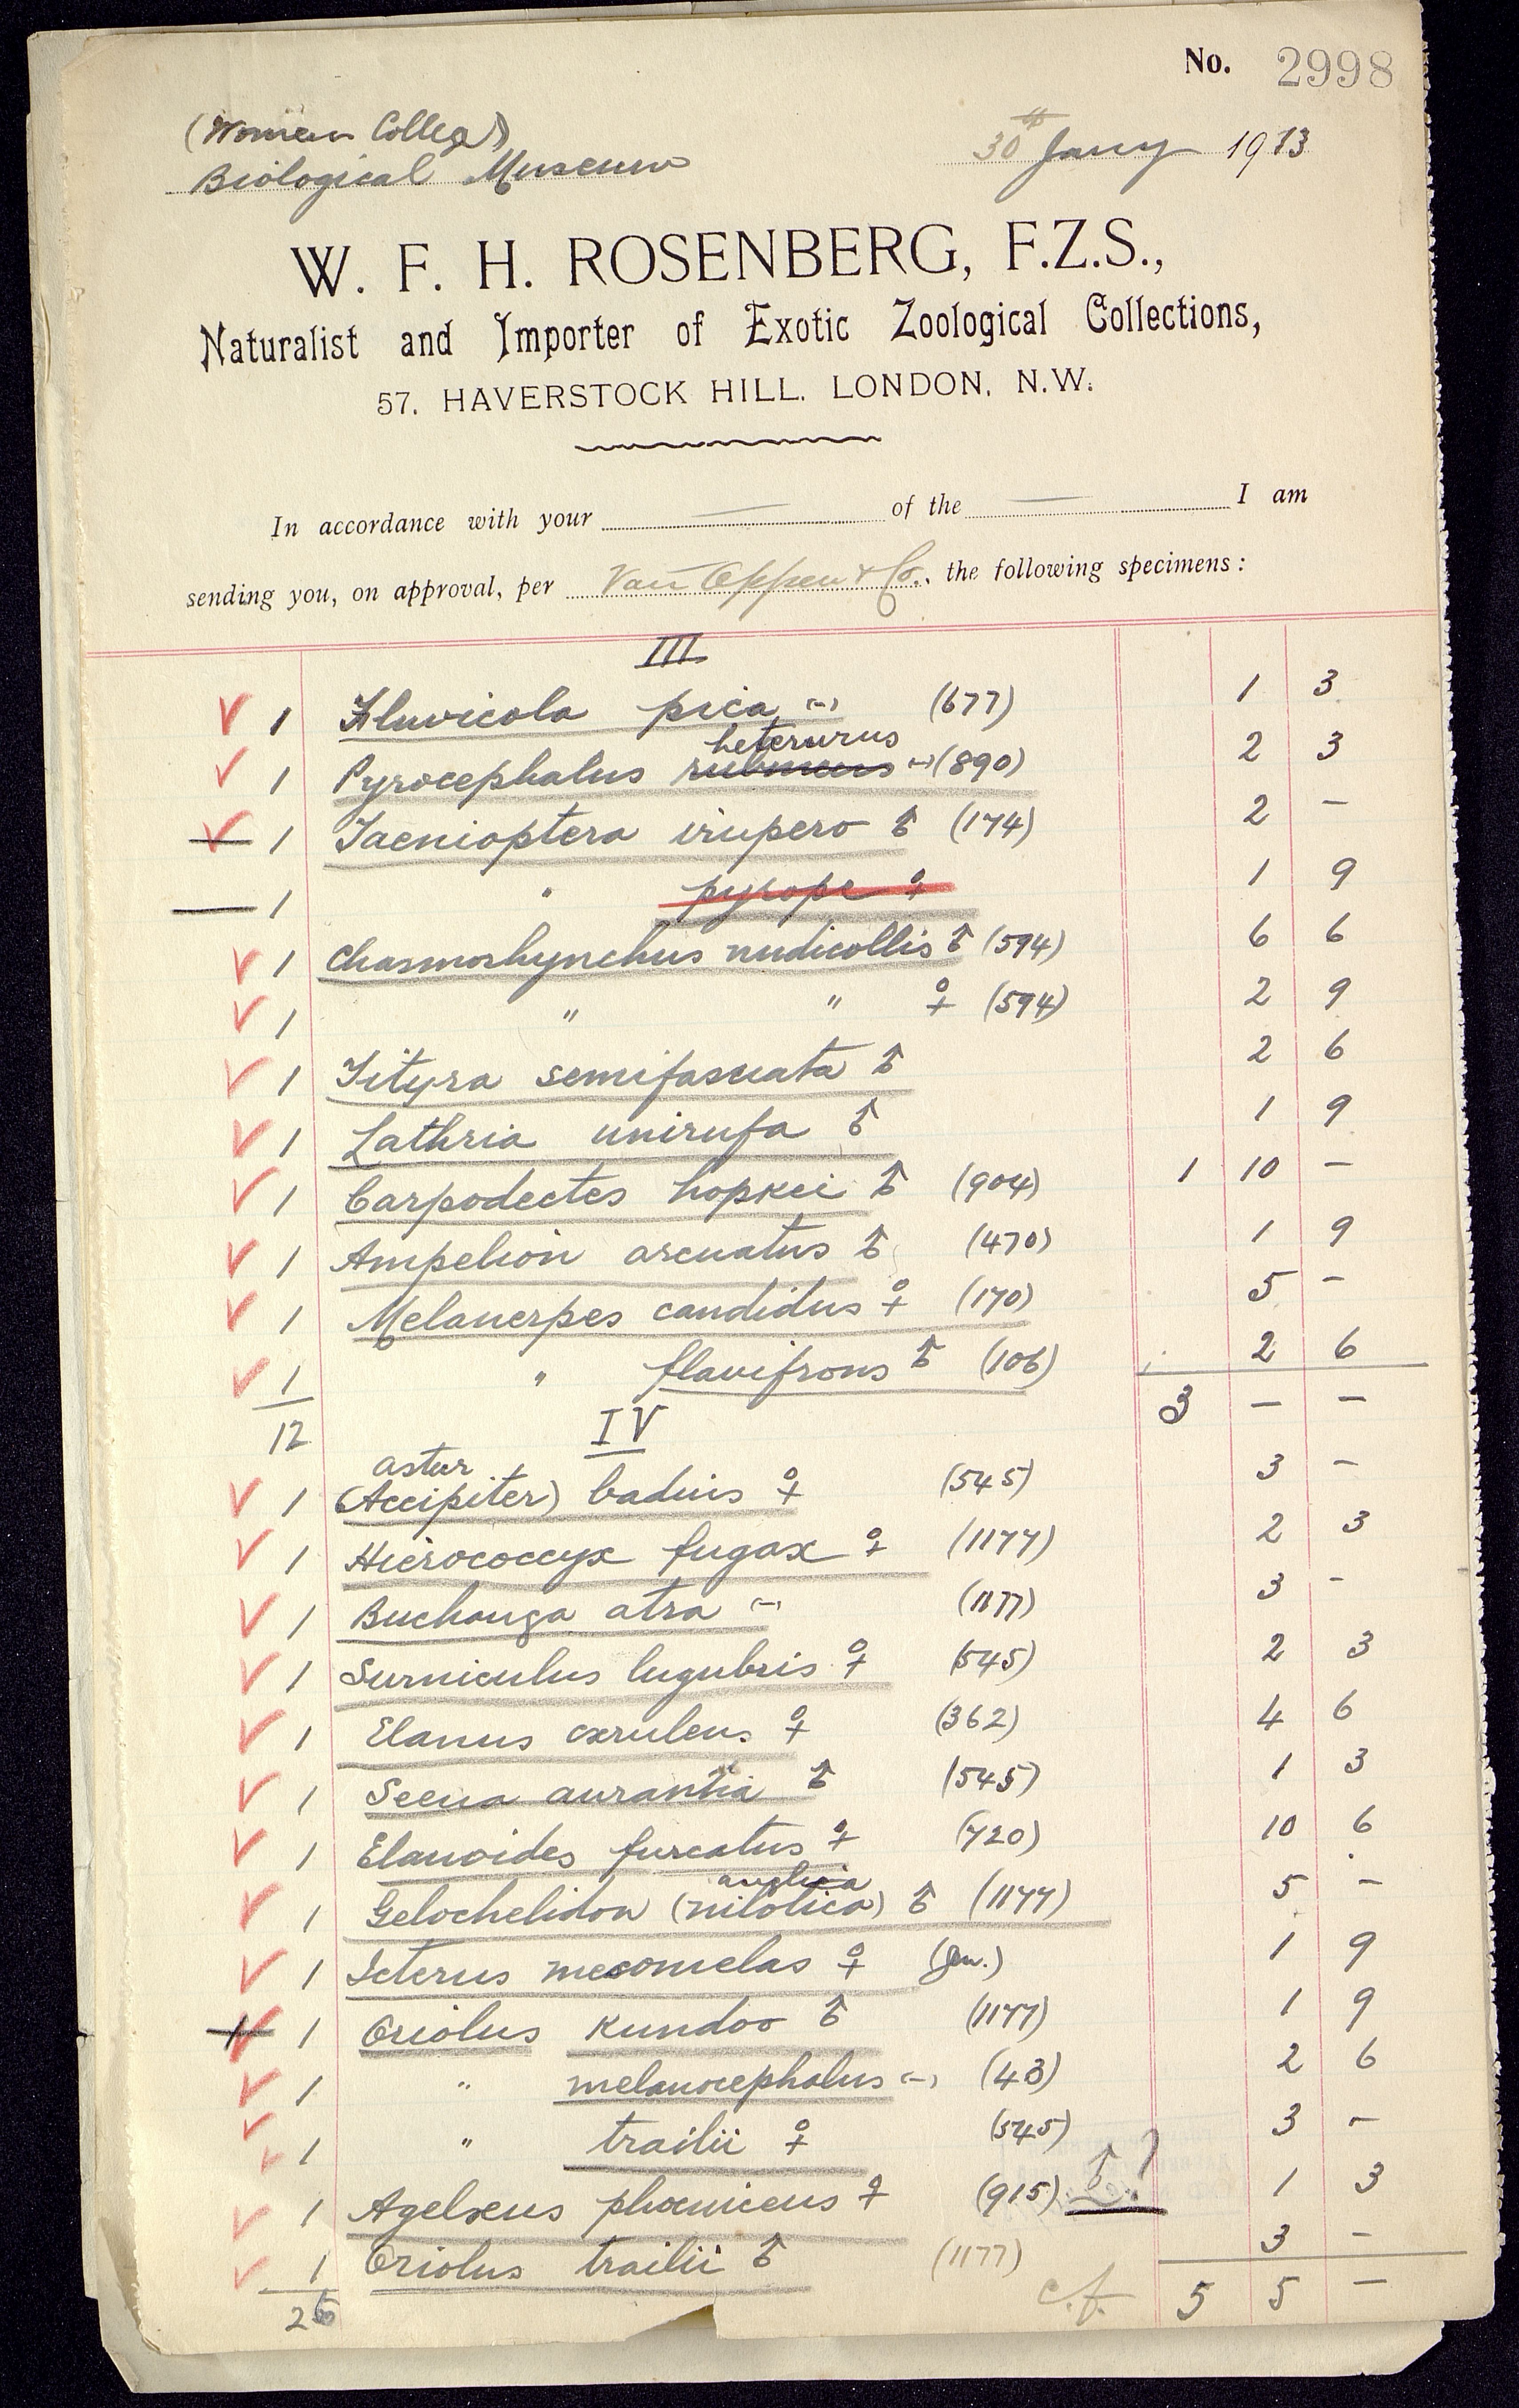 No. 2998
(Women College)
Biological Museum
30th Jany 1913
W. F. H. ROSENBERG, F.Z.S.,
Naturalist and Importer of Exotic Zoological Collections,
57, HAVERSTOCK HILL, LONDON, N.W.
In accordance with your — of the — I am
sending you, on approval, per Van Oppen & Co., the following specimens:
III
✓ 1 Fluvicola pica (-) (677) 1 3
heterurus
✓ 1 Pyrocephalus rubineus (-) (890) 2 3
✓ 1 Taenioptera irupero ♂ (174) 2 -
— 1 " pyrope ♀ 1 9
✓ 1 Chasmorhynchus nudicollis ♂ (594) 6 6
✓ 1 " " ♀ (594) 2 9
✓ 1 Tityra semifasciata ♂ 2 6
✓ 1 Lathria unirufa ♂ 1 9
✓ 1 Carpodectes hopkei ♂ (904) 1 10 -
✓ 1 Ampelion arcuatus ♂ (470) 1 9
✓ 1 Melanerpes candidus ♀ (170) 5 -
✓ 1 " flavifrons ♂ (106) 2 6
12 3 - -
IV
astur
✓ 1 (Accipiter) badius ♀ (545) 3 -
✓ 1 Hierococcyx fugax ♀ (1177) 2 3
✓ 1 Buchanga atra (-) (1177) 3 -
✓ 1 Surniculus lugubris ♀ (545) 2 3
✓ 1 Elanus cæruleus ♀ (362) 4 6
✓ 1 Seena aurantia ♂ (545) 1 3
✓ 1 Elanoides furcatus ♀ (720) 10 6
anglica
✓ 1 Gelochelidon (nilotica) ♂ (1177) 5 -
✓ 1 Icterus mesomelas ♀ 1 9
✓ 1 Oriolus kundoo ♂ (1177) 1 9
✓ 1 " melanocephalus (-) (43) 2 6
✓ 1 " trailii ♀ (545) 3 -
✓ 1 Agelæus phœniceus ♀ (915) ♂ ? 1 3
✓ 1 Oriolus trailii ♂ (1177) 3 -
26 c.f. 5 5 -